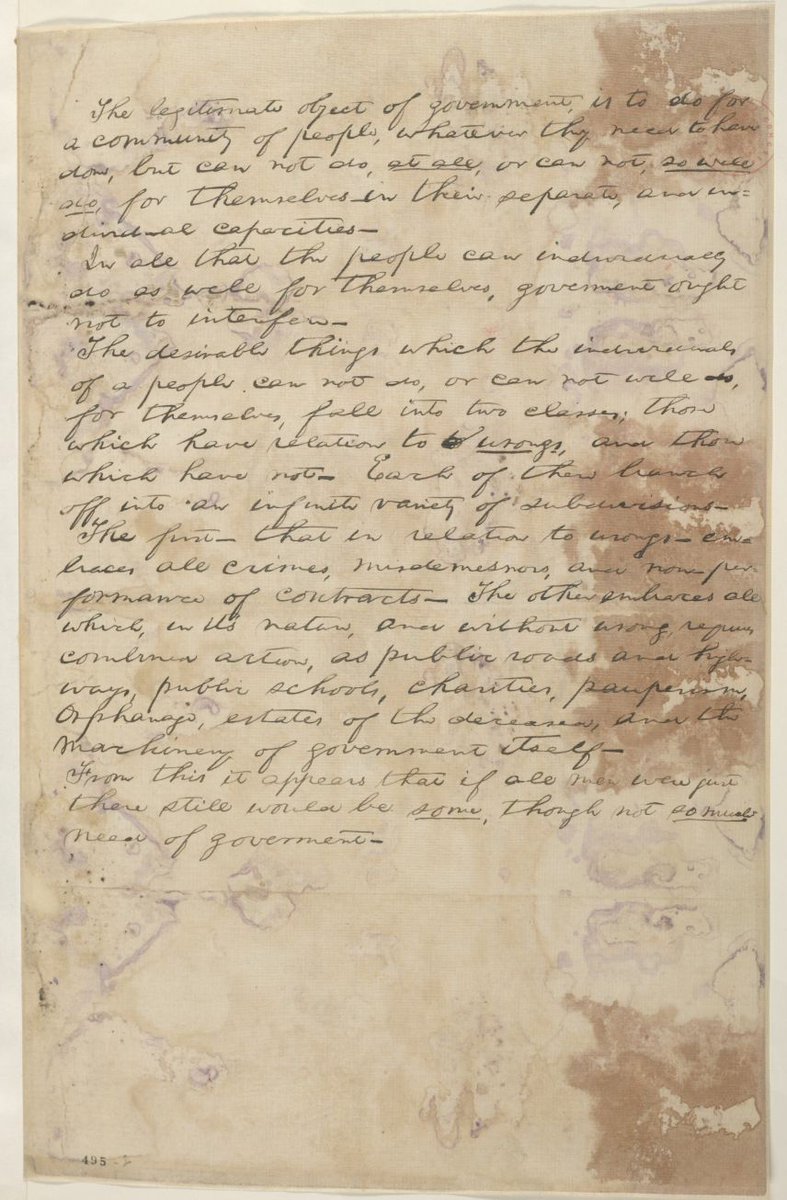 The legitimate object of government, is to do for
a community of people, whatever they need to have
done, but can not do, at all, or can not, so well
do, for themselves in their separate, and in=
divid-ual capacities—
In all that the people can individually
do as well for themselves, goverment ought
not to interfere—
The desirable things which the individuals
of a people can not do, or can not well do,
for themselves, fall into two classes; those
which have relation to wrongs, and those
which have not— Each of these branch
off into an infinite variety of subdivisions—
The first— that in relation to wrongs— em=
braces all crimes, misdemesnors, and non-per=
formance of contracts— The other embraces all
which, in its nature, and without wrong, requires
combined action, as public roads and high=
ways, public schools, charities, pauperism,
Orphanage, estates of the deceased, and the
machinery of government itself—
From this it appears that if all men were just
there still would be some, though not so much
need of goverment—
495